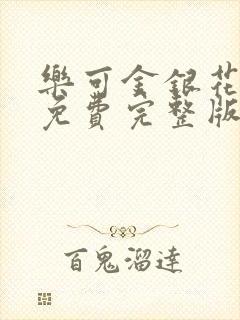 樂可金銀花
免費完整版
百鬼溜達